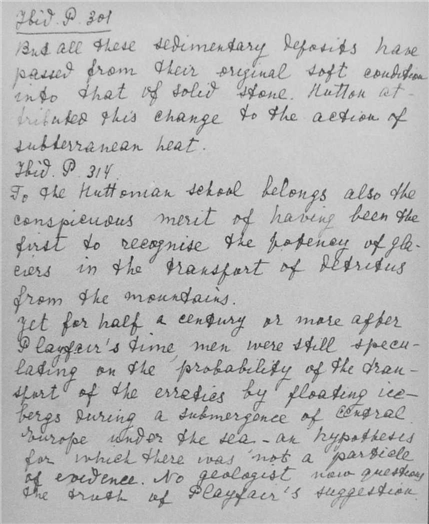 Ibid. P. 301
But all these sedimentary deposits have
passed from their original soft condition
into that of solid stone. Hutton at-
tributed this change to the action of
subterranean heat.
Ibid. P. 314.
To the Huttonian school belongs also the
conspicuous merit of having been the
first to recognise the potency of gla-
ciers in the transport of detritus
from the mountains.
Yet for half a century or more after
Playfair's time, men were still specu-
lating on the probability of the tran-
sport of the erratics by floating ice-
bergs during a submergence of Central
Europe under the sea - an hypothesis
for which there was not a particle
of evidence. No geologist now questions
the truth of Playfair's suggestion.